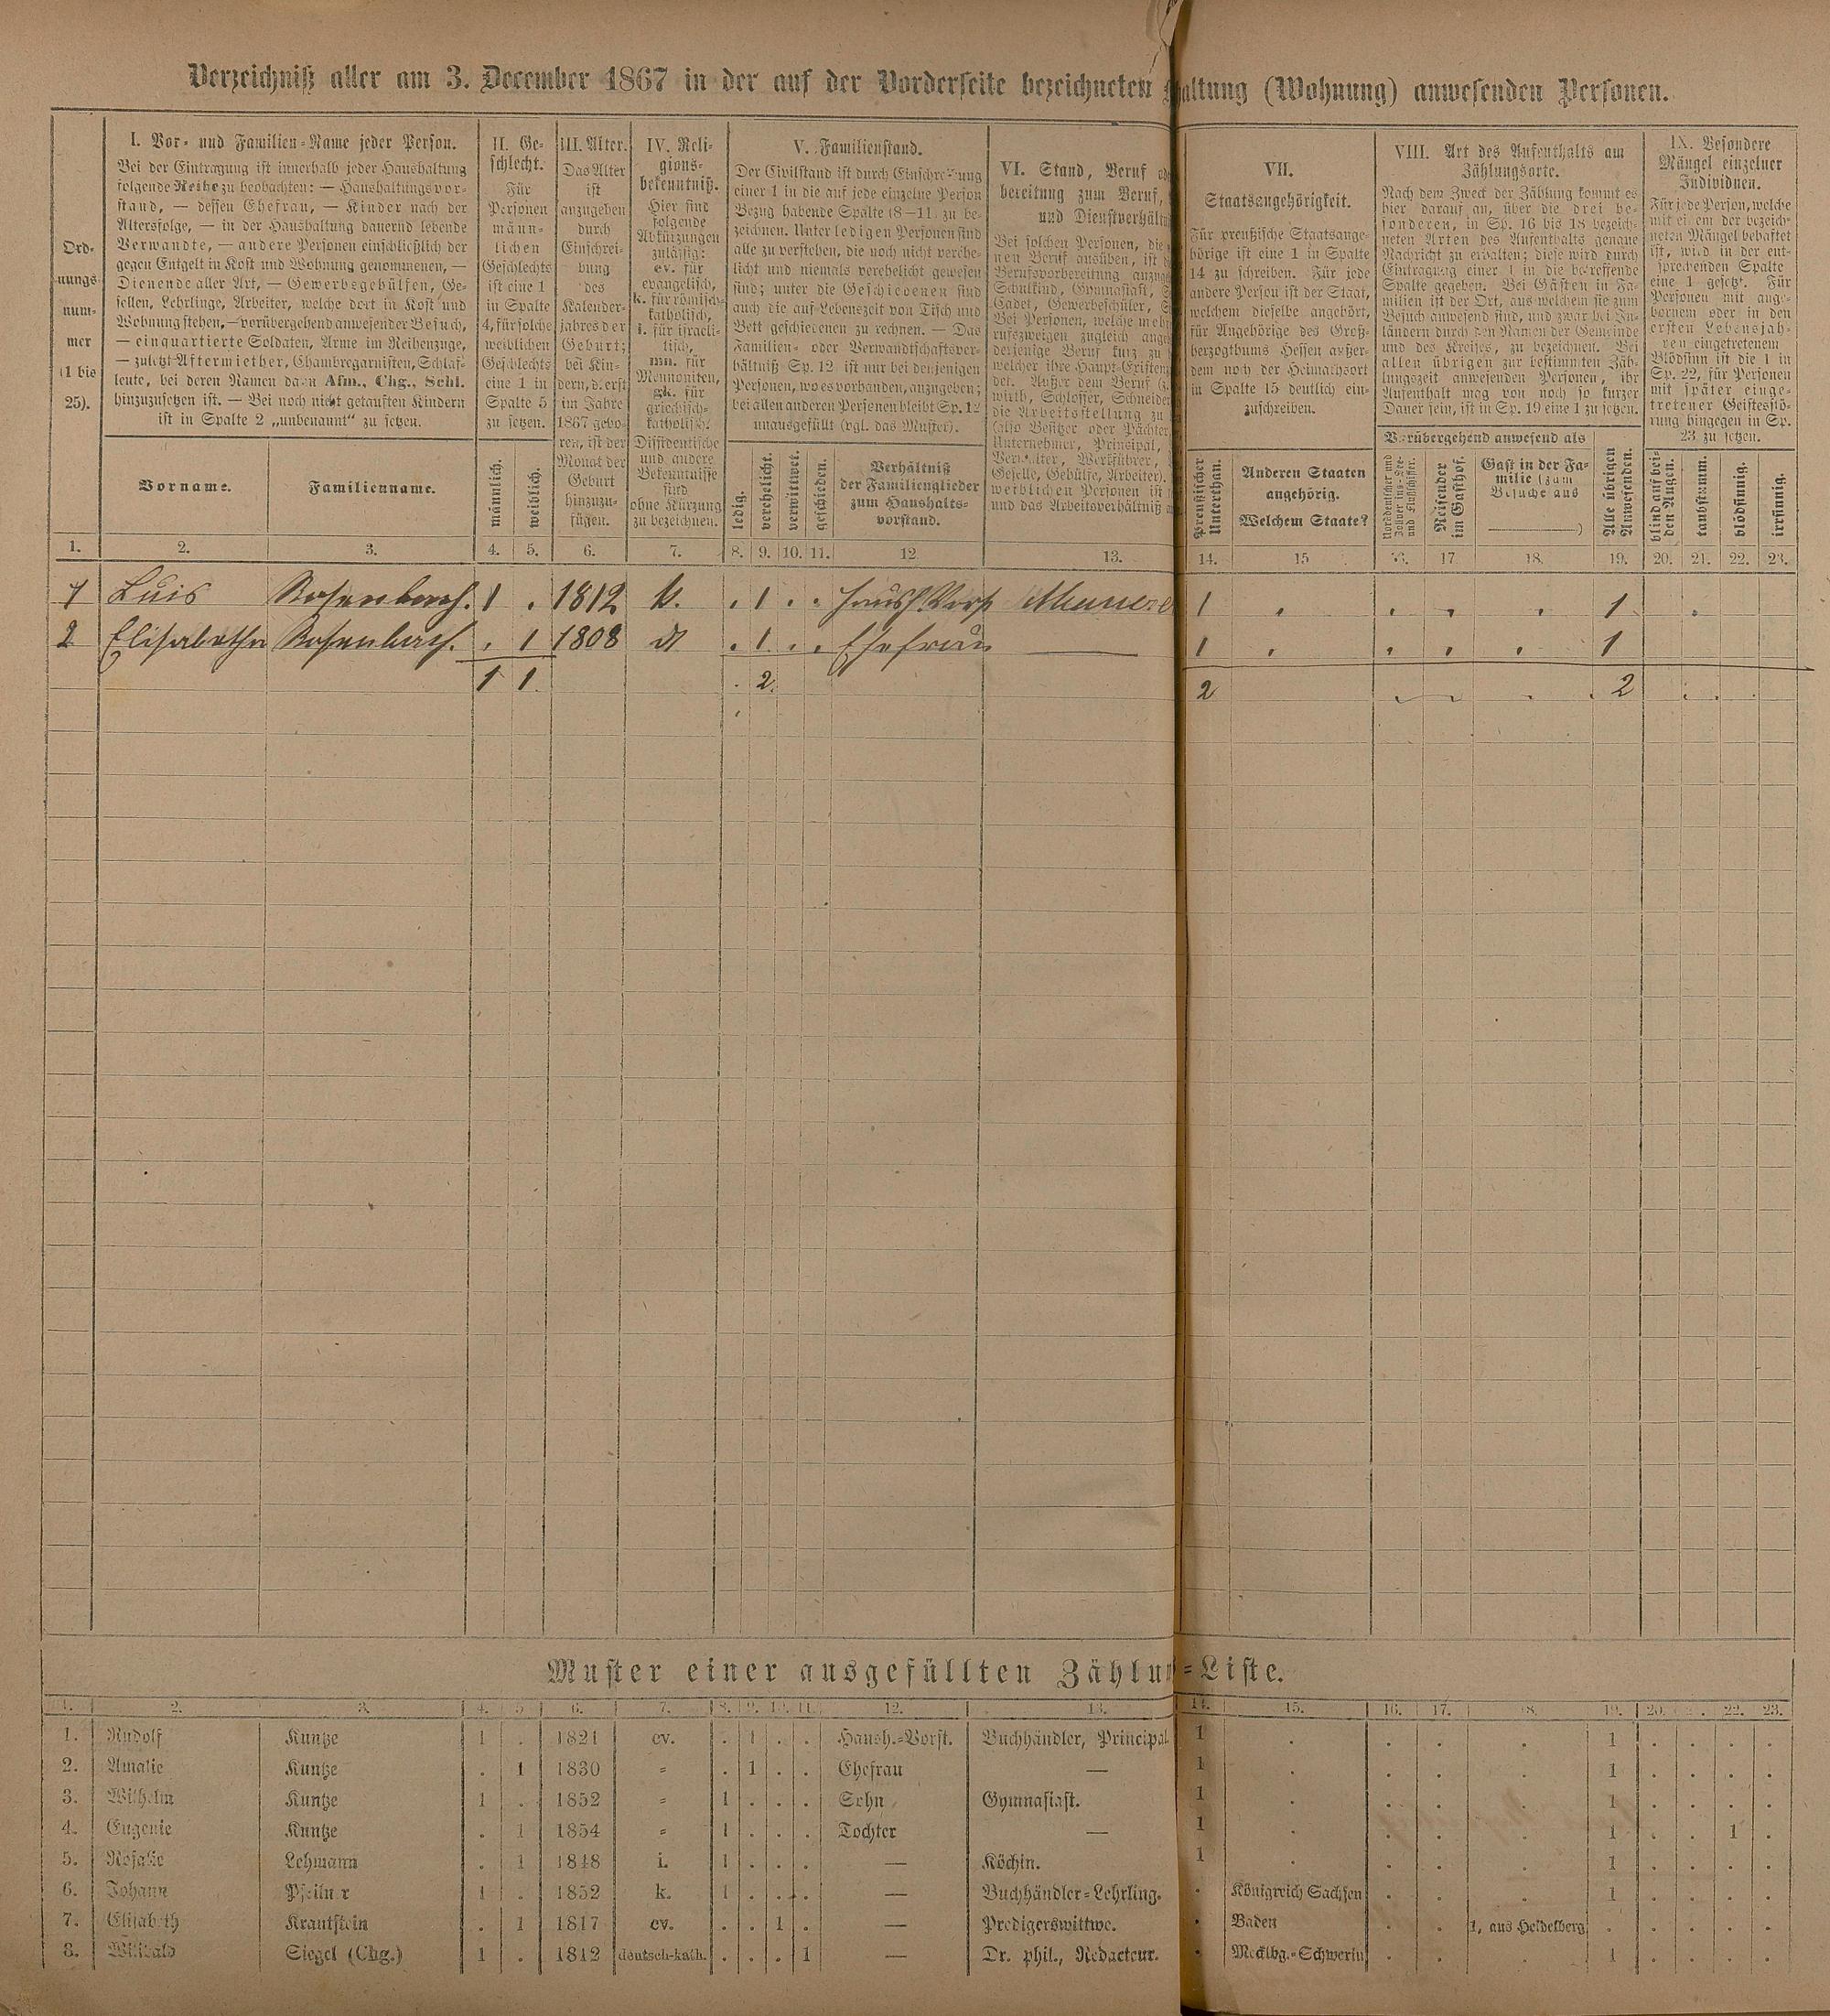 Verzeichniß aller am 3. December 1867 in der auf der Vorderseite bezeichneten altung (Wohnung) anwesenden Personen.
Ord-
nungs
num-
mer
(1 bis
25).
I. Vor- und Familien-Name jeder Person.
Bei der Eintragung ist innerhalb jeder Haushaltung
folgende Reihe zu beobachten: — Haushaltungsvor-
stand, — dessen Ehefrau, — Kinder nach der
Altersfolge, — in der Haushaltung dauernd lebende
Verwandte, — andere Personen einschließlich der
gegen Entgelt in Kost und Wohnung genommenen, —
Dienende aller Art, — Gewerbsgehülfen, Ge-
sellen, Lehrlinge, Arbeiter, welche dort in Kost und
Wohnung stehen, — vorübergehend anwesender Besuch,
— einquartierte Soldaten, Arme im Reihenzuge,
— zuletzt Aftermiether, Chambregarnisten, Schlaf-
leute, bei deren Namen dann Afm., Chg., Schl.
hinzuzusetzen ist. — Bei noch nicht getauften Kindern
ist in Spalte 2 „unbenannt“ zu setzen.
Vorname.
Familienname.
II. Ge-
schlecht.
Für
Personen
männ-
lichen
Geschlechts
ist eine 1
in Spalte
4, für solche
weiblichen
Geschlechts
eine 1 in
Spalte 5
zu setzen.
männlich.
weiblich.
III. Alter.
Das Alter
ist
anzugeben
durch
Einschrei-
bung
des
Kalender-
jahres der
Geburt;
bei Kin-
dern, d. erst
im Jahre
1867 gebo-
ren, ist der
Monat der
Geburt
hinzuzu-
fügen.
IV. Reli-
gions-
bekenntniß.
Hier sind
folgende
Abkürzungen
zulässig:
ev. für
evangelisch,
k. für römisch-
katholisch,
i. für israeli-
tisch,
mn. für
Mennoniten,
gk. für
griechisch-
katholisch.
Dissidentische
und andere
Bekenntnisse
sind
ohne Kürzung
zu bezeichnen.
V. Familienstand.
Der Civilstand ist durch Einschreibung
einer 1 in die auf jede einzelne Person
Bezug habende Spalte (8—11) zu be-
zeichnen. Unter ledigen Personen sind
alle zu verstehen, die noch nicht verehe-
licht und niemals verehelicht gewesen
sind; unter die Geschiedenen sind
auch die auf Lebenszeit von Tisch und
Bett geschiedenen zu rechnen. — Das
Familien- oder Verwandtschaftsver-
hältniß Sp. 12 ist nur bei denjenigen
Personen, wo es vorhanden, anzugeben;
bei allen anderen Personen bleibt Sp. 12
unausgefüllt (vgl. das Muster).
ledig.
verehelicht.
verwittwet.
geschieden.
Verhältniß
der Familienglieder
zum Haushalts-
vorstand.
VI. Stand, Beruf
bereitung zum Beruf,
und Dienstverhält
Bei solchen Personen, die
nen Beruf ausüben, ist
Berufsvorbereitung
Schulkind, Gymnasiast,
Cadet, Gewerbeschüler,
Bei Personen, welche
rufszweigen zugleich
derjenige Beruf kurz zu
welcher ihre Haupt-Existenz
det. Außer dem Beruf
wirth, Schlosser, Schneider
die Arbeitsstellung zu
(also Besitzer oder Pächter,
Unternehmer, Principal,
Verwalter, Werkführer,
Geselle, Gehülfe, Arbeiter).
weiblichen Personen ist
und das Arbeitsverhältniß
VII.
Staatsangehörigkeit.
Für preußische Staatsange-
hörige ist eine 1 in Spalte
14 zu schreiben. Für jede
andere Person ist der Staat,
welchem dieselbe angehört,
für Angehörige des Groß-
herzogthums Hessen außer-
dem noch der Heimathsort
in Spalte 15 deutlich ein-
zuschreiben.
Preußischer
Unterthan.
Anderen Staaten
angehörig.
Welchem Staate?
VIII. Art des Aufenthalts am
Zählungsorte.
Nach dem Zweck der Zählung kommt es
hier darauf an, über die drei be-
sonderen, in Sp. 16 bis 18 bezeich-
neten Arten des Aufenthalts genaue
Nachricht zu erhalten; diese wird durch
Eintragung einer 1 in die betreffende
Spalte gegeben. Bei Gästen in Fa-
milien ist der Ort, aus welchem sie zum
Besuch anwesend sind, und zwar bei In-
ländern durch den Namen der Gemeinde
und des Kreises, zu bezeichnen. Bei
allen übrigen zur bestimmten Zäh-
lungszeit anwesenden Personen, ihr
Aufenthalt mag von noch so kurzer
Dauer sein, ist in Sp. 19 eine 1 zu setzen.
Vorübergehend anwesend als
Reisender
im Gasthof.
Gast in der Fa-
milie (zum
Besuche aus
)
Alle übrigen
Anwesenden.
IX. Besondere
Mängel einzelner
Individuen.
Für jede Person, welche
mit einem der bezeich-
neten Mängel behaftet
ist, wird in der ent-
sprechenden Spalte
eine 1 gesetzt. Für
Personen mit ange-
bornem oder in den
ersten Lebensjah-
ren eingetretenem
Blödsinn ist die 1 in
Sp. 22, für Personen
mit später einge-
tretener Geistesstö-
rung hingegen in Sp.
23 zu setzen.
blind auf bei-
den Augen.
taubstumm.
blödsinnig.
irrsinnig.
1. 2. 3. 4. 5. 6. 7. 8. 9. 10. 11. 12. 13. 14. 15 17 18. 19. 20. 21. 22. 23.
1 Luis Rosenbach. 1 . 1812 k. . 1 . . Haush. Vorst Maurer 1 1
2 Elisabetha Rosenbach. . 1 1808 . 1 . . Ehefrau — 1 1
1 1. 2. 2 2
Muster einer ausgefüllten Zählu =Liste.
1. 2. 3. 4. 5 6. 7. 8. 9. 10. 11. 12. 13. 14. 15. 16. 17. 18. 19. 20. 22. 23.
1. Rudolf Kuntze 1 . 1821 ev. . 1 . . Haush.-Vorst. Buchhändler, Principal 1 . . . . 1 . . . .
2. Amalie Kuntze . 1 1830 = . 1 . . Ehefrau — 1 . . . . 1 . . . .
3. Wilhelm Kuntze 1 . 1852 = 1 . . . Sohn Gymnasiast. 1 . . . . 1 . . . .
4. Eugenie Kuntze . 1 1854 = 1 . . . Tochter — 1 . . . . 1 . . 1 .
5. Rosalie Lehmann . 1 1848 i. 1 . . . — Köchin. 1 . . . . 1 . . . .
6. Johann Pfeilner 1 . 1852 k. 1 . . . — Buchhändler-Lehrling. . Königreich Sachsen . . . 1 . . . .
7. Elisabeth Krautstein . 1 1817 ev. . . 1 . — Predigerswittwe. . Baden . . 1, aus Heidelberg . . . . .
8. Willibald Siegel (Chg.) 1 . 1812 deutsch-kath. . . . 1 — Dr. phil., Redacteur. . Mecklbg.-Schwerin . . . 1 . . . .